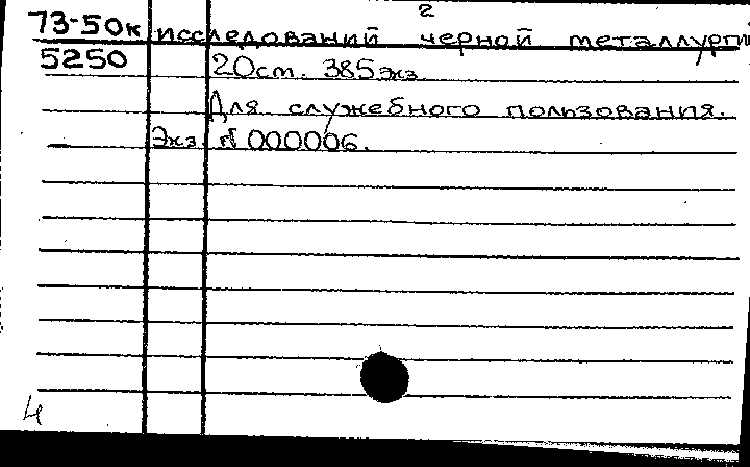 2
73-50к исследований черной металлурги
5250 20см. 385экз
Для служебного пользования.
Экз N 000006.
4